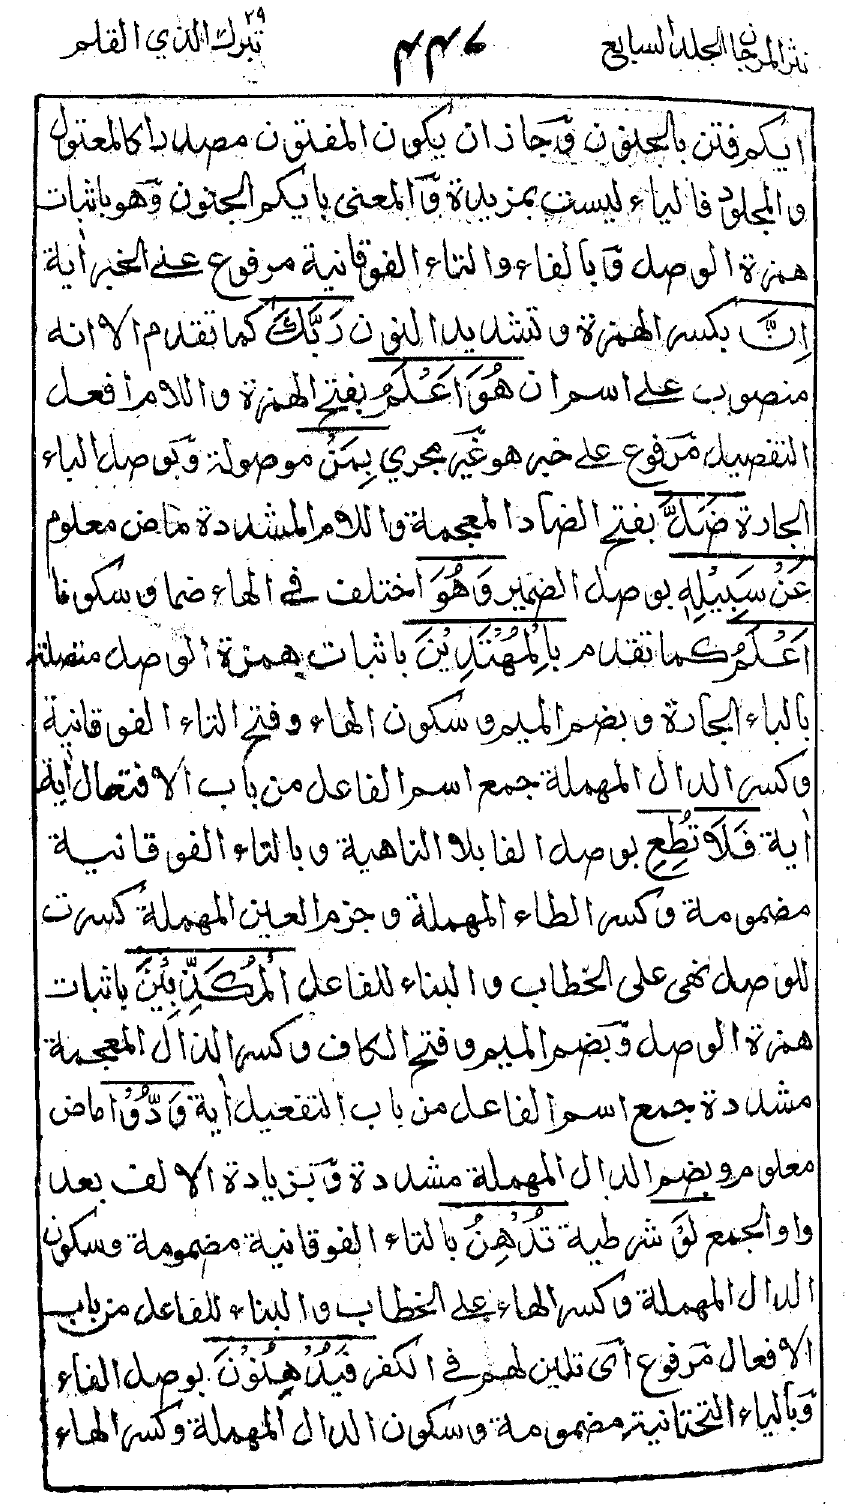 نثر المرجان الجلد السابع ٤٤٦ تبرك الذي ٢٩ القلم
ايكم فتن بالجنون وَجاز ان يكون المفتون مصدرا كالمعقول
والمجلود فالباء ليست بمزيدة وَالمعنى بايكم الجنون وَهو باثبات
همزة الوصل وَبالفاء والتاء الفوقانية مرفوع على الخبر اٰية
اِنَّ بكسر الهمزة وتشديد النون رَبَّكَ كما تقدم الا انه
منصوب على اسم ان هُوَ اَعْلَمُ بفتح الهمزة واللام افعل
التفضيل مَرفوع على خبر هو غَير مجري بِمَنْ موصولة وَبوصل الباء
الجارة ضَلَّ بفتح الضاد المعجمة واللام المشددة ماض معلوم
عَنْ سَبِيْلِهٖ بوصل الضمير وَهُوَ اختلف في الهاء ضما وسكونا
اَعْلَمُ كما تقدم بِالْمُهْتَدِيْنَ باثبات همزة الوصل متصلة
بالباء الجارة وبضم الميم وسكون الهاء وفتح التاء الفوقانية
وكسر الدال المهملة جمع اسم الفاعل من باب الافتعال اٰية
اٰية فَلَا تُطِعِ بوصل الفا بلا الناهية وبالتاء الفوقانية
مضمومة وكسر الطاء المهملة وجزم العين المهملة كسرت
للوصل نهى على الخطاب والبناء للفاعل الْمُكَذِّبِيْنَ باثبات
همزة الوصل وَبضم الميم وفتح الكاف وكسر الذال المعجمة
مشددة جمع اسم الفاعل من باب التفعيل اٰية وَدُّوْا ماض
معلوم وبضم الدال المهملة مشددة وَبزيادة الالف بعد
واو الجمع لَوْ شرطية تُدْهِنُ بالتاء الفوقانية مضمومة وسكون
الدال المهملة وكسر الهاء على الخطاب والبناء للفاعل من باب
الافعال مَرفوع اَى تلين لهم في الكفر فَيُدْهِنُوْنَ بوصل الفاء
وَبالياء التحتانية مضمومة وسكون الدال المهملة وكسر الهاء